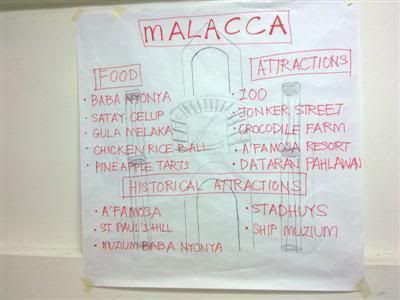 MALACCA
FOOD
• BABA NYONYA
• SATAY CELUP
• GULA MELAKA
• CHICKEN RICE BALL
• PINEAPPLE TARTS
ATTRACTIONS
• ZOO
• JONKER STREET
• CROCODILE FARM
• A'FAMOSA RESORT
• DATARAN PAHLAWAN
HISTORICAL ATTRACTIONS
• A'FAMOSA
• ST. PAUL'S HILL
• MUZIUM BABA NYONYA
• STADHUYS
• SHIP MUZIUM